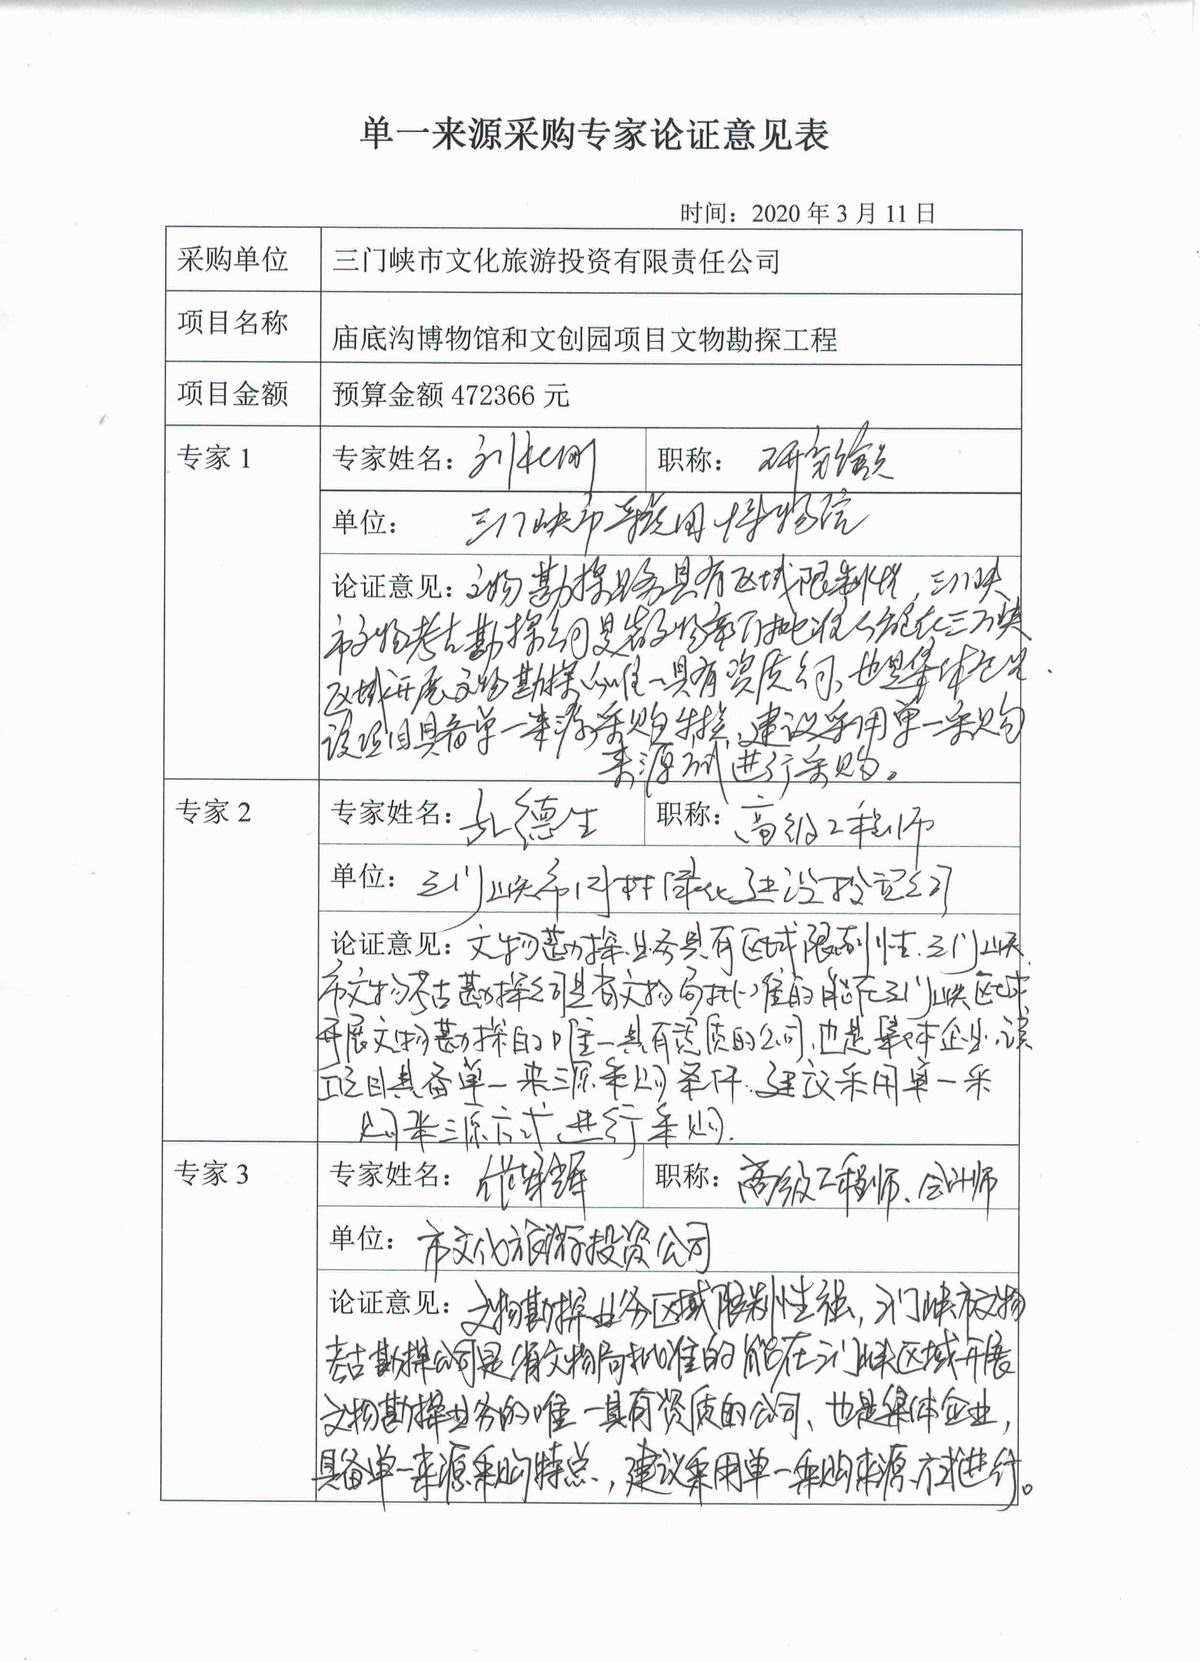 单一来源采购专家论证意见表
时间：2020 年 3 月 11 日
采购单位 三门峡市文化旅游投资有限责任公司
项目名称 庙底沟博物馆和文创园项目文物勘探工程
项目金额 预算金额 472366 元
专家 1 专家姓名： 职称： 研究馆员
单位： 三门峡市 博物院
论证意见：文物勘探业务具有区域限制性，三门峡
市文物考古勘探公司是省文物局批准 能在三门峡
区域开展文物勘探 唯一具有资质公司、也是集体企业.
该项目具备单一来源采购 ，建议采用单一采购
来源方式进行采购。
专家 2 专家姓名： 德生 职称：高级工程师
单位： 三门峡市 建设投资公司
论证意见：文物勘探业务具有区域限制性.三门峡
市文物考古勘探公司是省文物局批准的能在三门峡区域
开展文物勘探的唯一具有资质的公司.也是集体企业.该
项目具备单一来源采购条件.建议采用单一采
购来源方式进行采购.
专家 3 专家姓名： 职称：高级工程师、会计师
单位： 市文化旅游投资公司
论证意见：文物勘探业务区域限制性强，三门峡市文物
考古勘探公司是省文物局批准的能在三门峡区域开展
文物勘探业务的唯一具有资质的公司、也是集体企业，
具备单一来源采购特点，建议采用单一采购来源方式进行。